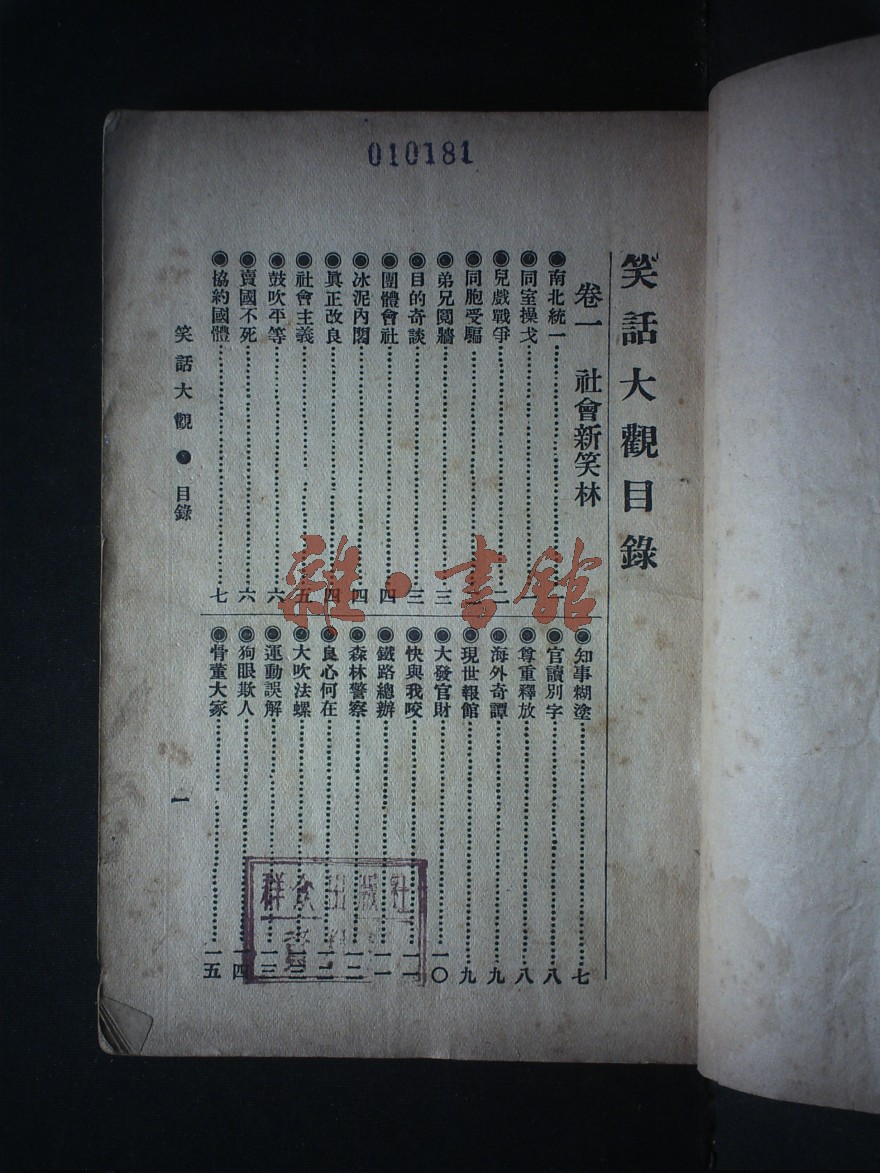 010181
笑話大觀目錄
卷一 社會新笑林
◉南北統一……一
◉同室操戈……一
◉兒戲戰爭……二
◉同胞受騙……二
◉弟兄鬩牆……三
◉目的奇談……三
◉團體會社……四
◉冰泥內閣……四
◉眞正改良……四
◉社會主義……五
◉鼓吹平等……六
◉賣國不死……六
◉協約國體……七
◉知事糊塗……七
◉官讀別字……八
◉尊重釋放……八
◉海外奇譚……九
◉現世報館……九
◉大發官財……一〇
◉快與我咬……一一
◉鐵路總辦……一一
◉森林警察……一二
◉良心何在……一二
◉大吹法螺……一三
◉運動誤解……一三
◉狗眼欺人……一四
◉骨董大家……一五
笑話大觀 目錄
一
群众出版社
雜·書館